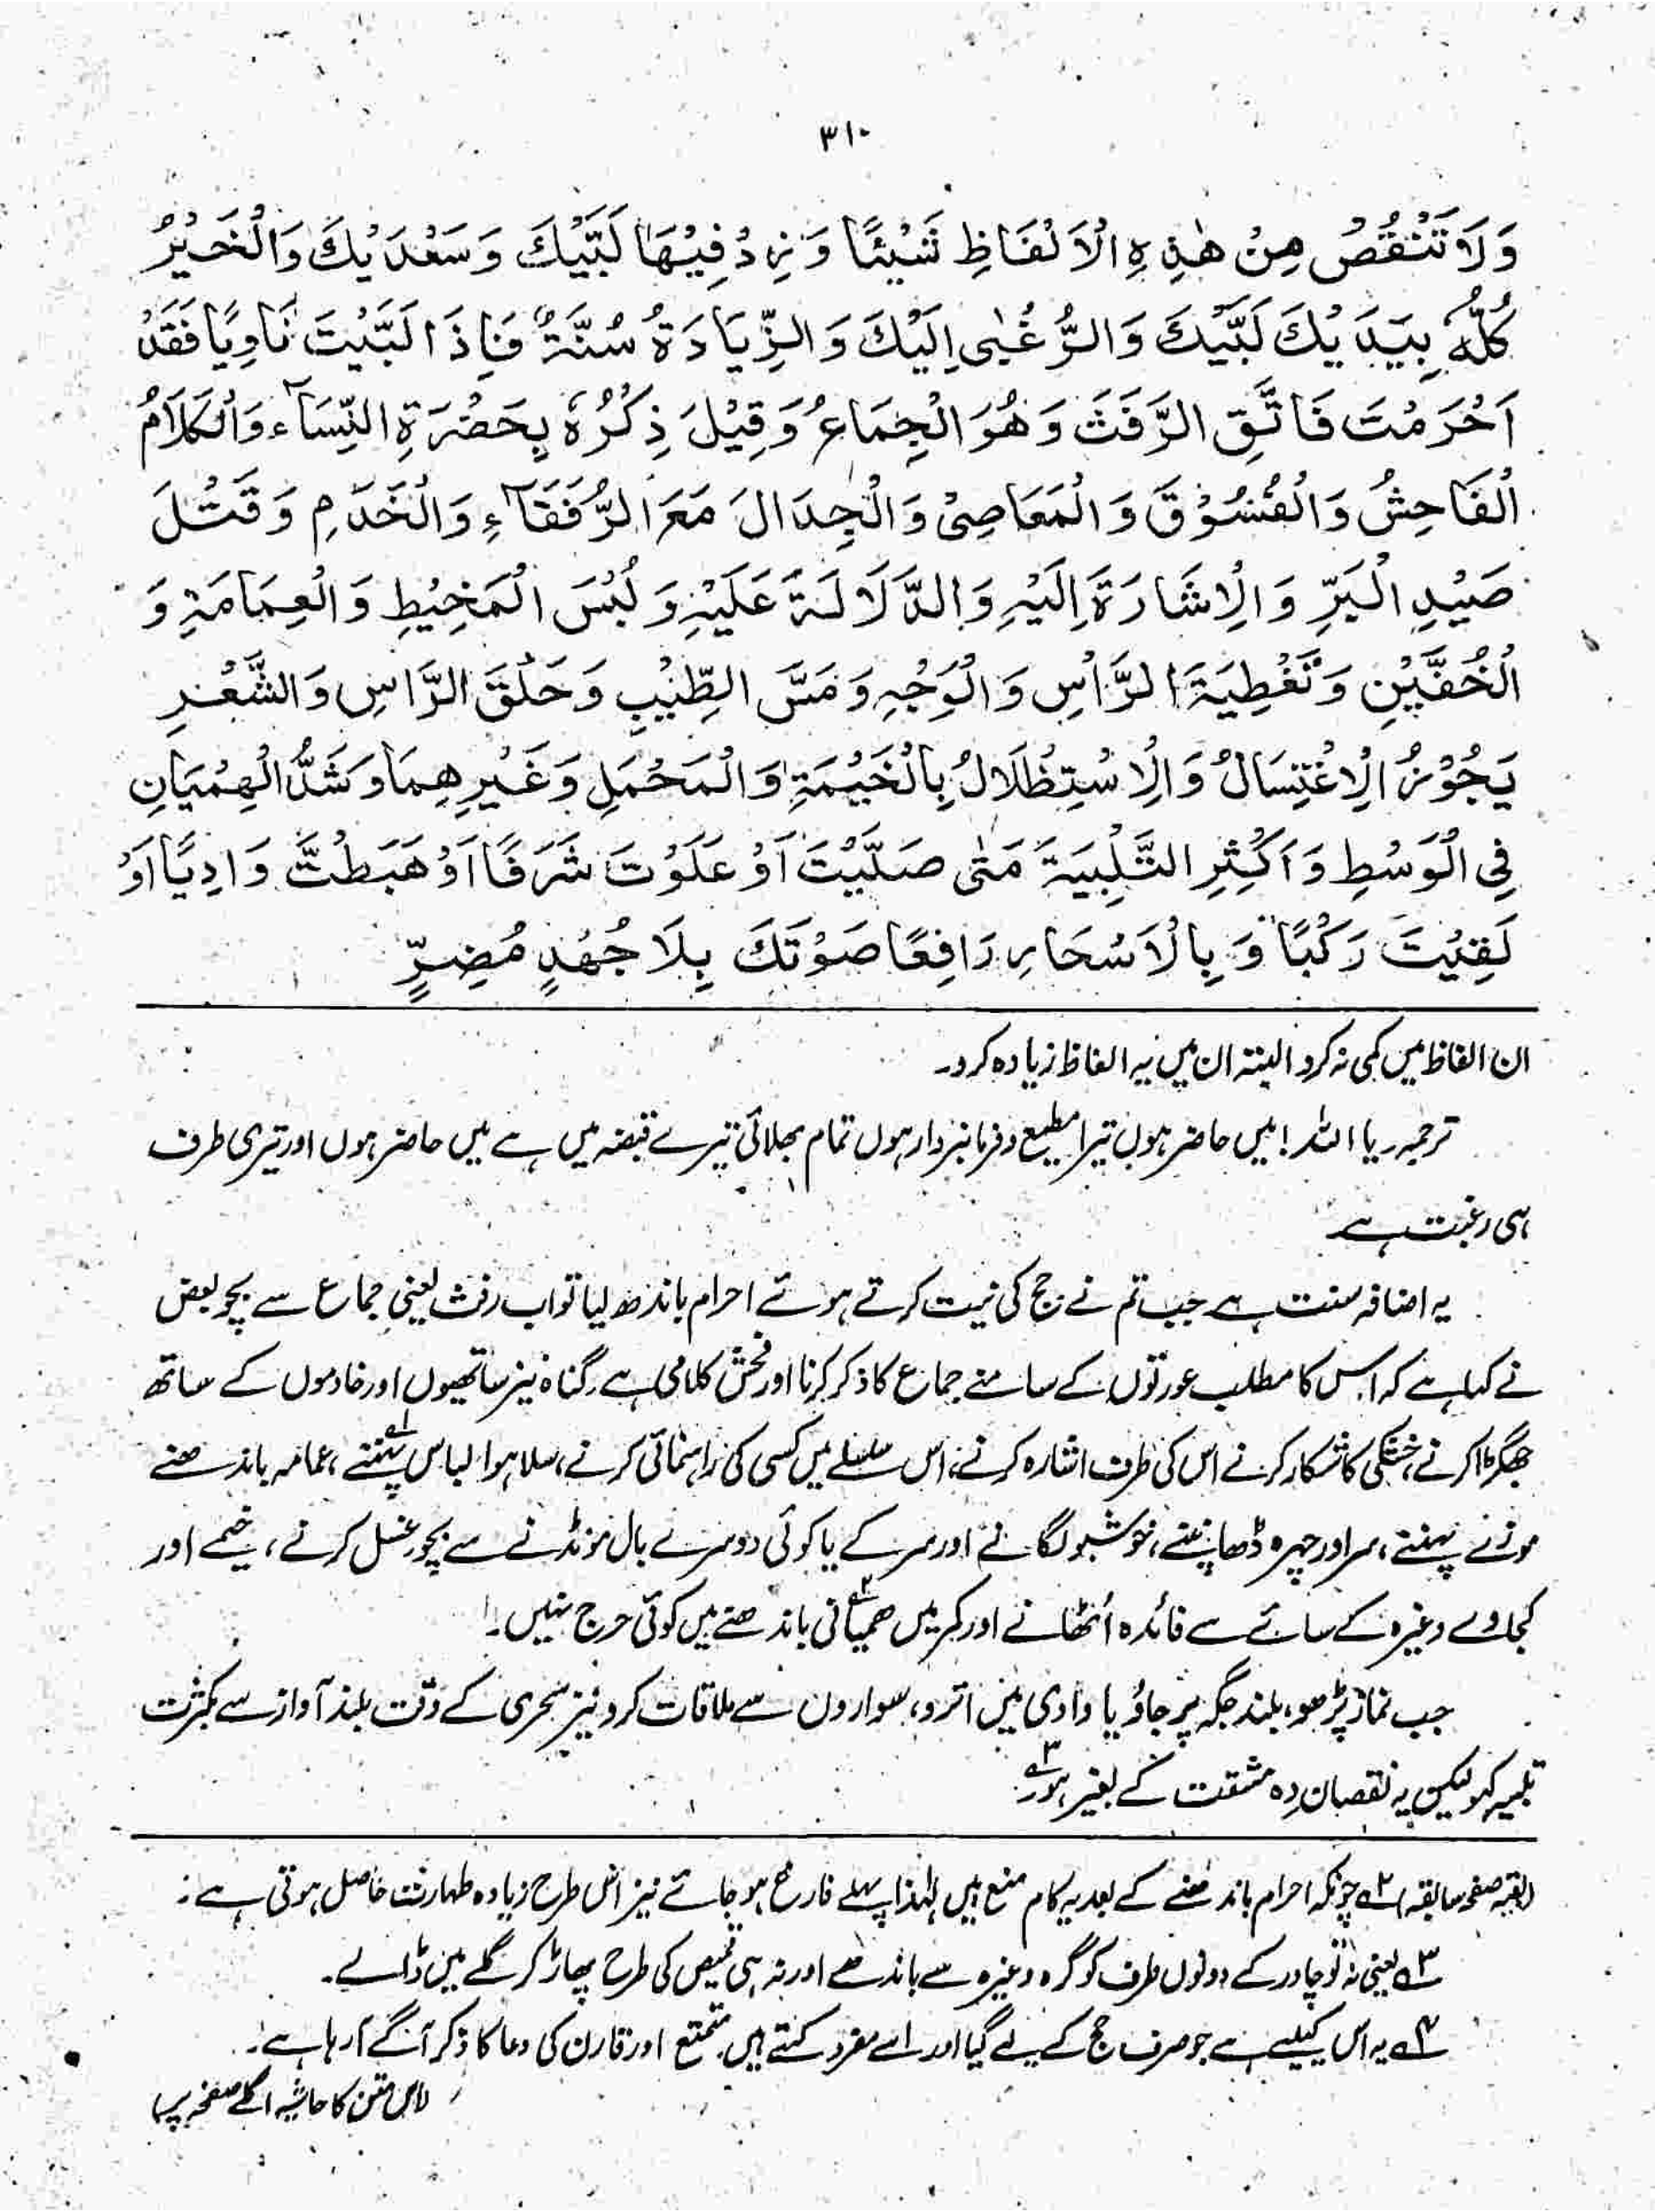 ۳۱۰
وَلَا تَنْقُصْ مِنْ هٰذِهِ الْاَلْفَاظِ شَيْئًا وَزِدْ فِيْهَا لَبَّيْكَ وَسَعْدَيْكَ وَالْخَيْرُ
كُلُّهٗ بِيَدَيْكَ لَبَّيْكَ وَالرُّغْبٰى اِلَيْكَ وَالزِّيَادَةُ سُنَّةٌ فَاِذَا لَبَّيْتَ نَاوِيًا فَقَدْ
اَحْرَمْتَ فَاتَّقِ الرَّفَثَ وَهُوَ الْجِمَاعُ وَقِيْلَ ذِكْرُهٗ بِحَضْرَةِ النِّسَآءِ وَالْكَلَامُ
الْفَاحِشُ وَالْفُسُوْقَ وَالْمَعَاصِيْ وَالْجِدَالَ مَعَ الرُّفَقَآءِ وَالْخَدَمِ وَقَتْلَ
صَيْدِ الْبَرِّ وَالْاِشَارَةَ اِلَيْهِ وَالدَّلَالَةَ عَلَيْهِ وَلُبْسَ الْمَخِيْطِ وَالْعِمَامَةِ وَ
الْخُفَّيْنِ وَتَغْطِيَةَ الرَّاْسِ وَالْوَجْهِ وَمَسَّ الطِّيْبِ وَحَلْقَ الرَّاسِ وَالشَّعْرِ
يَجُوْزُ الْاِغْتِسَالُ وَالْاِسْتِظْلَالُ بِالْخَيْمَةِ وَالْمَحْمَلِ وَغَيْرِهِمَا وَشَدُّ الْهِمْيَانِ
فِي الْوَسْطِ وَاَكْثِرِ التَّلْبِيَةَ مَتٰى صَلَّيْتَ اَوْ عَلَوْتَ شَرَفًا اَوْ هَبَطْتَّ وَادِيًا اَوْ
لَقِيْتَ رَكْبًا وَبِالْاَسْحَارِ رَافِعًا صَوْتَكَ بِلَا جُهْدٍ مُضِرٍّ
ان الفاظ میں کمی نہ کرو البتہ ان میں یہ الفاظ زیادہ کرو۔
ترجمہ ۔ یا اللہ! میں حاضر ہوں تیرا مطیع و فرمانبردار ہوں تمام بھلائی تیرے قبضہ میں ہے میں حاضر ہوں اور تیری طرف
ہی رغبت ہے
یہ اضافہ سنت ہے جب تم نے حج کی نیت کرتے ہوئے احرام باندھ لیا تو اب رفث یعنی جماع سے بچو بعض
نے کہا ہے کہ اس کا مطلب عورتوں کے سامنے جماع کا ذکر کرنا اور فحش کلامی ہے۔ گناہ نیز ساتھیوں اور خادموں کے ساتھ
جھگڑا کرنے، خشکی کا شکار کرنے اس کی طرف اشارہ کرنے، اس سلسلے میں کسی کی راہنمائی کرنے، سلا ہوا لباس پہننے۱؎، عمامہ باندھنے
موزے پہننے، سر اور چہرہ ڈھانپنے، خوشبو لگانے اور سر کے یا کوئی دوسرے بال مونڈنے سے بچو۔ غسل کرنے، خیمے اور
کجاوے وغیرہ کے سائے سے فائدہ اُٹھانے اور کمر میں ھمیانی۲؎ باندھنے میں کوئی حرج نہیں۔
جب نماز پڑھو، بلند جگہ پر جاؤ یا وادی میں اترو، سواروں سے ملاقات کرو نیز سحری کے وقت بلند آواز سے بکثرت
تلبیہ کہو لیکن یہ نقصان دہ مشقت کے بغیر ہو۳؎۔
(بقیہ صفحہ سابقہ) ۲؎ چونکہ احرام باندھنے کے بعد یہ کام منع ہیں لہٰذا پہلے فارغ ہو جائے نیز اس طرح زیادہ طہارت حاصل ہوتی ہے۔
۳؎ یعنی نہ تو چادر کے دونوں طرف کو گرہ وغیرہ سے باندھے اور نہ ہی قمیص کی طرح پھاڑ کر گلے میں ڈالے۔
۴؎ یہ اس کیلیے ہے جو صرف حج کے لیے گیا اور اسے مفرد کہتے ہیں۔ متمتع اور قارن کی دعا کا ذکر آگے آرہا ہے۔
(اس متن کا حاشیہ اگلے صفحہ پر)